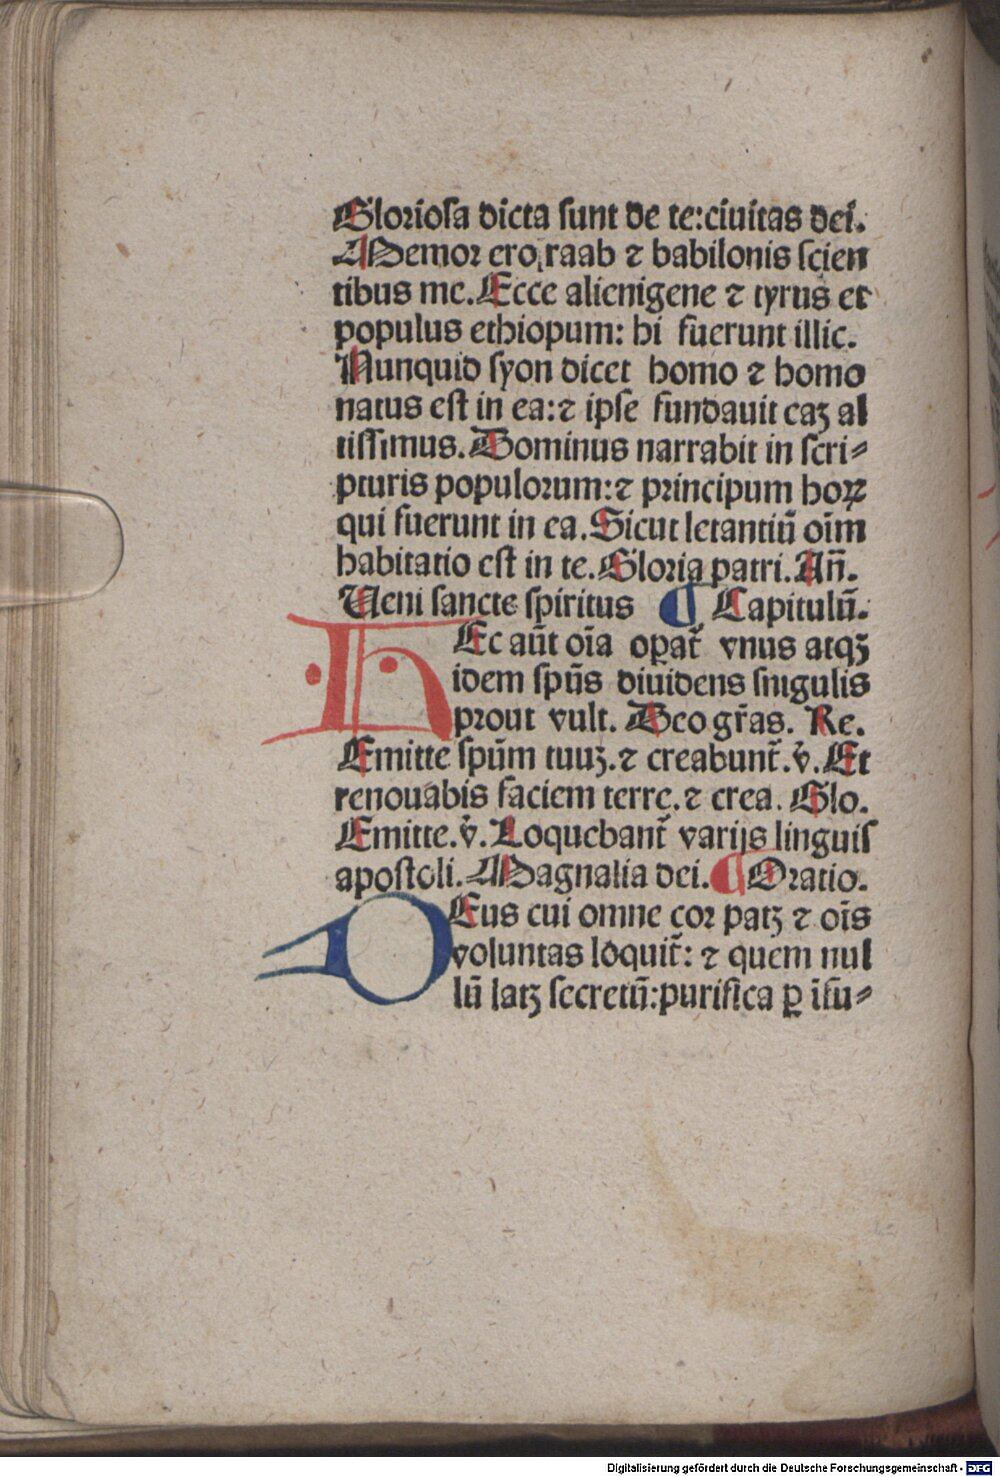 Gloriosa dicta sunt de te:ciuitas dei.
Memor ero raab ⁊ babilonis scien
tibus me. Ecce alienigene ⁊ tyrus et
populus ethiopum: hi fuerunt illic.
Nunquid syon dicet homo ⁊ homo
natus est in ea:⁊ ipse fundauit eaꝫ al
tissimus. Dominus narrabit in scri⸗
pturis populorum:⁊ principum hoꝝ
qui fuerunt in ea. Sicut letantiū oīm
habitatio est in te. Gloria patri. Añ.
Ueni sancte spiritus ¶ Capitulū.
HEc aūt oīa oꝑat̄ vnus atqꝫ
idem spūs diuidens singulis
prout vult. Deo gr̄as. Re.
Emitte spūm tuuꝫ.⁊ creabunt̄.v̄. Et
renouabis faciem terre.⁊ crea. Glo.
Emitte.v̄. Loquebant̄ varijs linguis
apostoli. Magnalia dei. ¶ Oratio.
DEus cui omne cor patꝫ ⁊ oīs
voluntas loquit̄: ⁊ quem nul
lū latꝫ secretū:purifica ꝑ īfu⸗
Digitalisierung gefördert durch die Deutsche Forschungsgemeinschaft - DFG